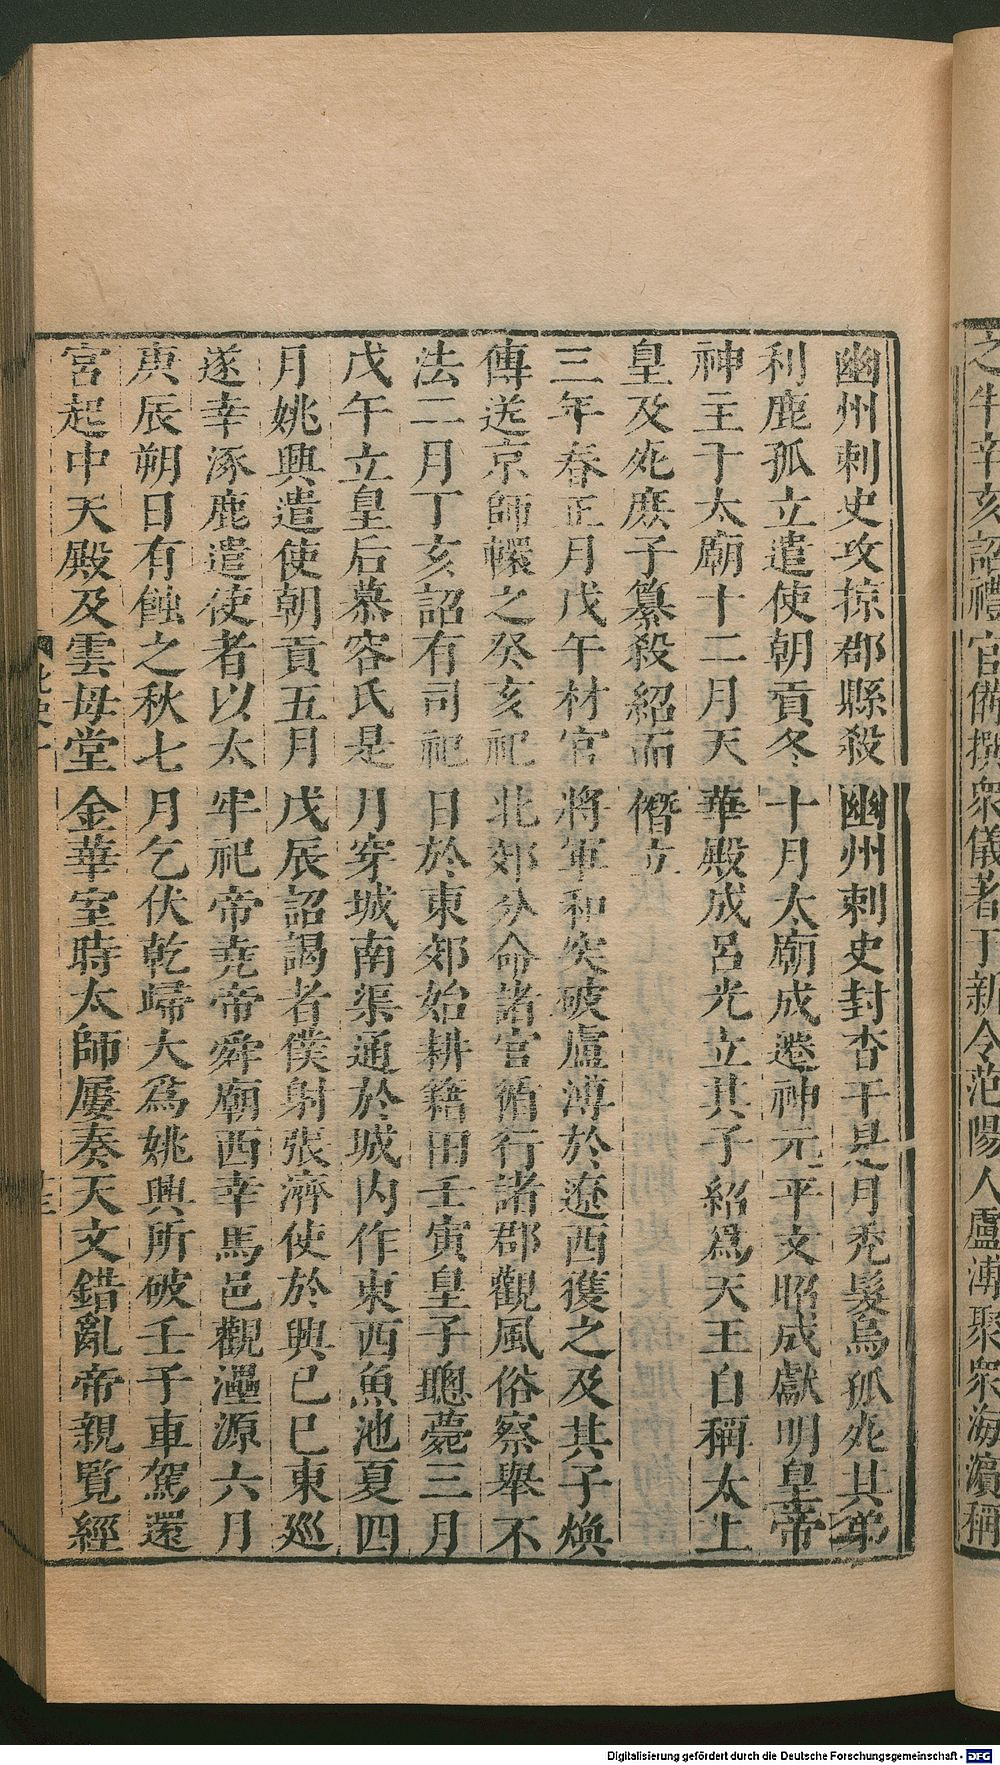 之牛辛亥詔禮官備撰衆儀著于新令范陽人盧溥聚衆海濱稱
幽州刺史攻掠郡縣殺幽州刺史封沓干是月禿髮烏孤死其弟
利鹿孤立遣使朝貢冬十月太廟成遷神元平文昭成獻明皇帝
神主于太廟十二月天華殿成呂光立其子紹爲天王自稱太上
皇及死庶子纂殺紹而僭立
三年春正月戊午材官將軍和突破盧溥於遼西獲之及其子煥
傳送京師轘之癸亥祀北郊分命諸官循行諸郡觀風俗察舉不
法二月丁亥詔有司祀日於東郊始耕籍田壬寅皇子聰薨三月
戊午立皇后慕容氏是月穿城南渠通於城內作東西魚池夏四
月姚興遣使朝貢五月戊辰詔謁者僕射張濟使於興已巳東巡
遂幸涿鹿遣使者以太牢祀帝堯帝舜廟西幸馬邑觀灅源六月
庚辰朔日有蝕之秋七月乞伏乾歸大爲姚興所破壬子車駕還
宮起中天殿及雲母堂金華室時太師屢奏天文錯亂帝親覽經
Digitalisierung gefördert durch die Deutsche Forschungsgemeinschaft - DFG